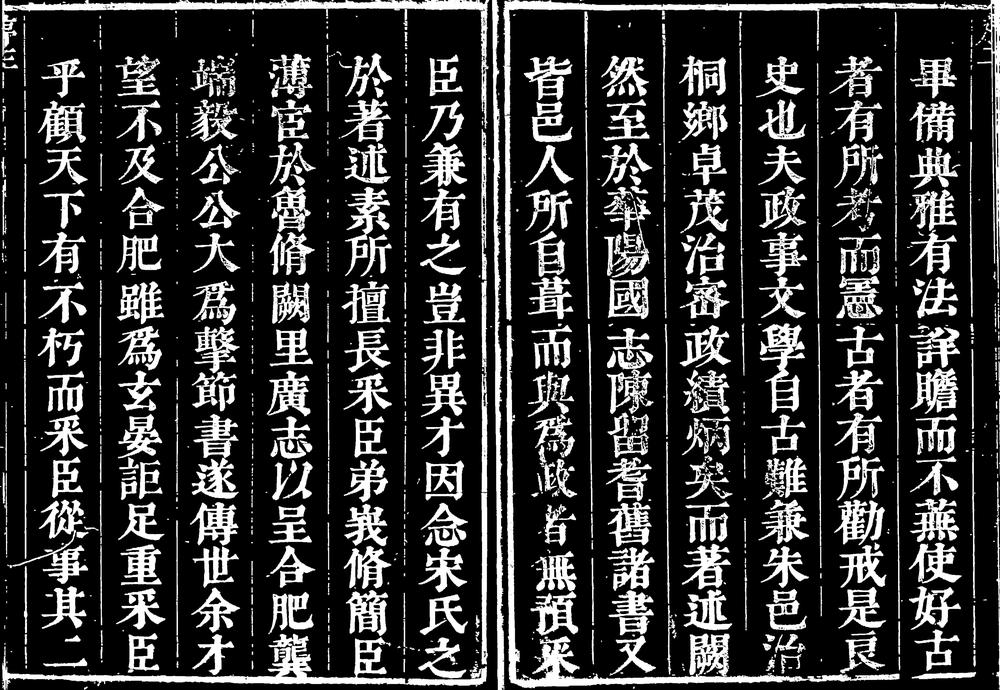 畢備典雅有法詳贍而不蕪使好古
者有所考而憲古者有所勸戒是良
史也夫政事文學自古難兼朱邑治
桐鄉卓茂治密政績炳矣而著述闕
然至於華陽國志陳留耆舊諸書又
皆邑人所自葺而與爲政者無預采
臣乃兼有之豈非異才因念宋氏之
於著述素所擅長釆臣弟嶷脩簡臣
薄宦於魯脩闕里廣志以呈合肥龔
端毅公公大爲擊節書遂傳世余才
望不及合肥雖爲玄晏詎足重釆臣
乎顧天下有不朽而釆臣從事其二